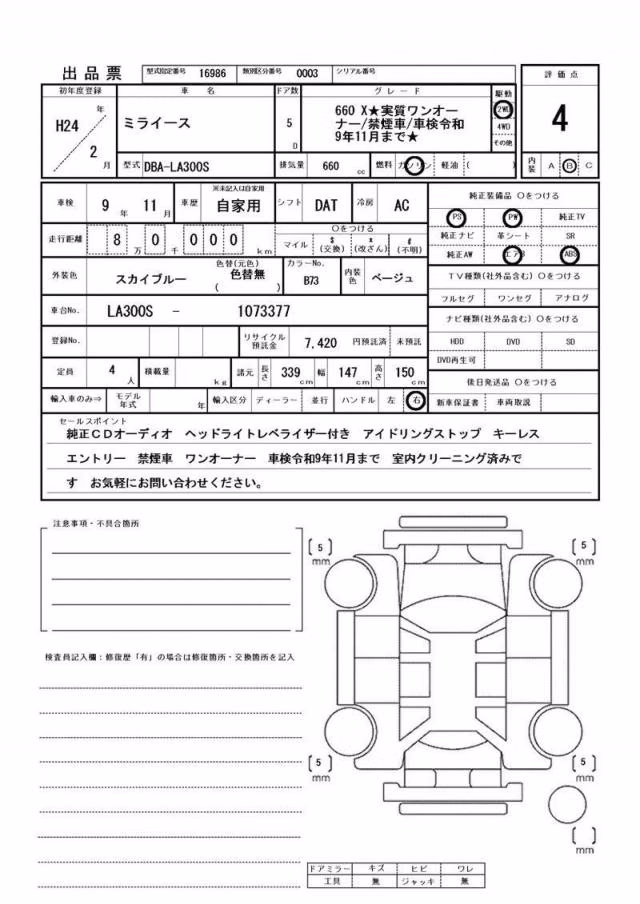 出品票 型式指定番号 16986 類別区分番号 0003 シリアル番号
評価点
4
初年度登録 車名 ドア数 グレード 駆動
H24 年 2 月
ミライース
5 D
660 X★実質ワンオー
ナー/禁煙車/車検令和
9年11月まで★
2WD
4WD
その他
型式 DBA-LA300S 排気量 660 cc 燃料 ガソリン 軽油 ( )
内装 A B C
車検 9 年 11 月 車歴 ※未記入は自家用 自家用 シフト DAT 冷房 AC
走行距離 8 万 0 千 0 0 0 km
○をつける
マイル $(交換) x(改ざん) #(不明)
外装色 スカイブルー 色替(元色) 色替無 ( ) カラーNo. B73 内装色 ベージュ
車台No. LA300S - 1073377
登録No. リサイクル預託金 7,420 円預託済 未預託
定員 4 人 積載量 kg 諸元 長さ 339 cm 幅 147 cm 高さ 150 cm
輸入車のみ⇒ モデル年式 年 輸入区分 ディーラー 並行 ハンドル 左 右
純正装備品 ○をつける
PS PW 純正TV
純正ナビ 革シート SR
純正AW エアB ABS
TV種類(社外品含む) ○をつける
フルセグ ワンセグ アナログ
ナビ種類(社外品含む) ○をつける
HDD DVD SD
DVD再生可
後日発送品 ○をつける
新車保証書 車両取説
セールスポイント
純正CDオーディオ ヘッドライトレベライザー付き アイドリングストップ キーレス
エントリー 禁煙車 ワンオーナー 車検令和9年11月まで 室内クリーニング済みで
す お気軽にお問い合わせください。
注意事項・不具合箇所
検査員記入欄：修復歴「有」の場合は修復箇所・交換箇所を記入
〔5〕mm
〔5〕mm
〔5〕mm
〔5〕mm
〔 〕mm
ドアミラー キズ ヒビ ワレ
工具 無 ジャッキ 無